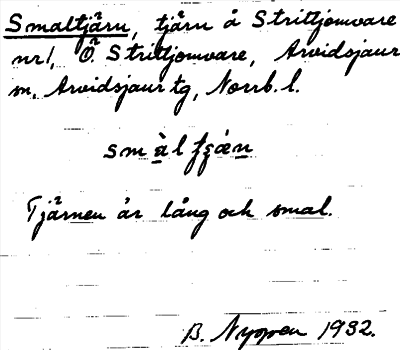 Smaltjärn, tjärn å Strittjomvare
nr 1, Ö. Strittjomvare, Arvidsjaur
sn, Arvidsjaur tg, Norrb. l.
Tjärnen är lång och smal.
B. Nyppen 1932.